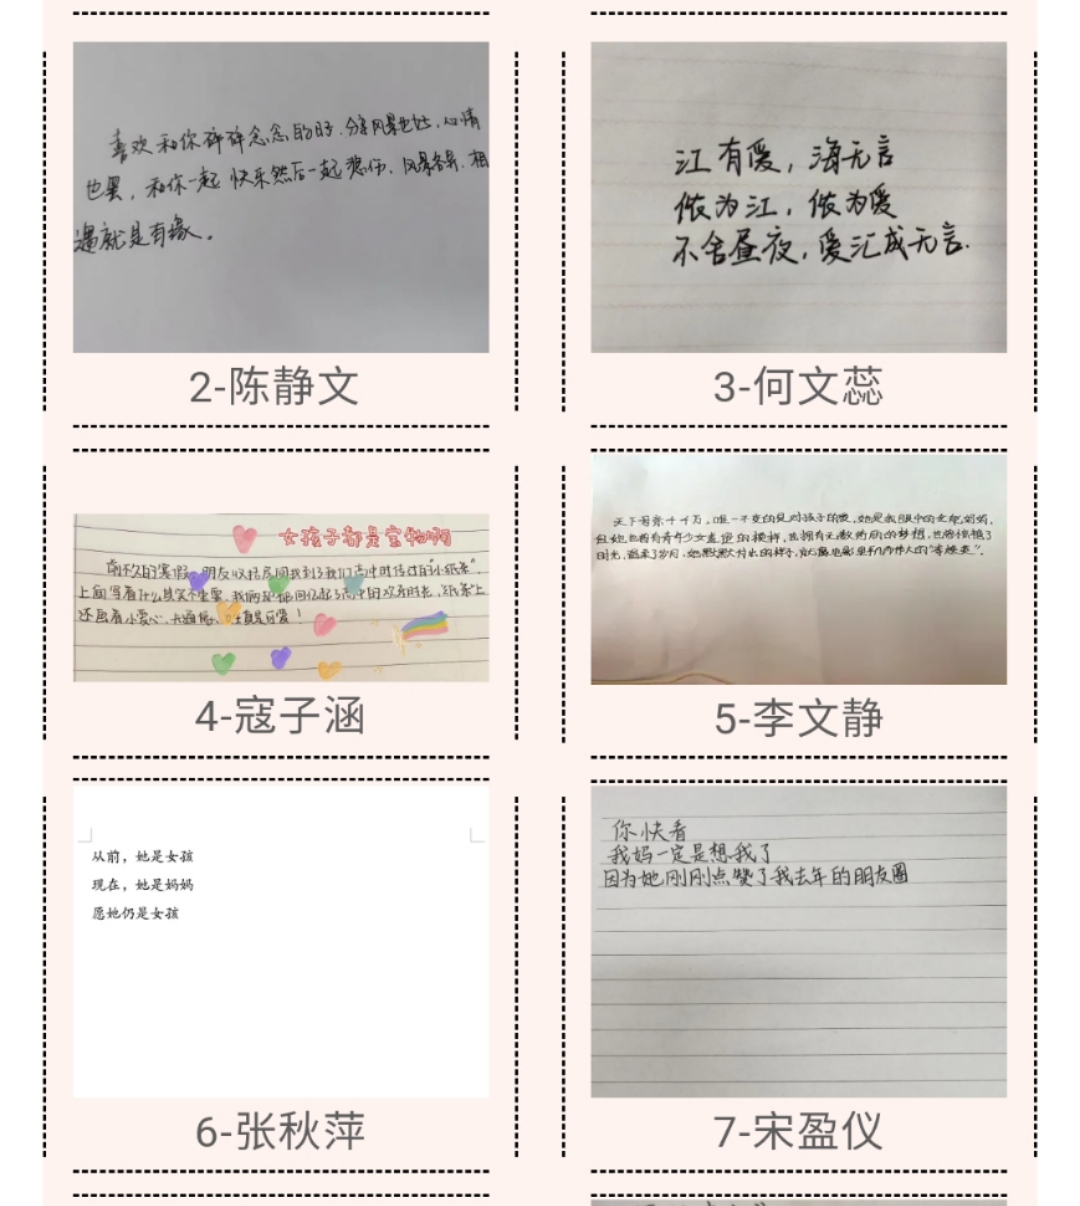 喜欢和你碎碎念念的日子.分享风景也好.心情
也罢，和你一起快乐然后一起悲伤.风景各异.相
遇就是有缘。
2-陈静文
江有爱，海无言
侬为江，侬为爱
不舍昼夜，爱汇成无言.
3-何文蕊
女孩子都是宝物啊
前不久的寒假，朋友收拾房间找到了我们高中时传过的"小纸条"，
上面写着什么其实不重要，我俩却都回忆起了高中的欢乐时光，纸条上
还画着小爱心、卡通 真是可爱！
4-寇子涵
天下母亲千千万，唯一不变的是对孩子的爱，她是我眼中的女孢,妈妈,
但她也曾有青年少女 的模样,也拥有无数绚丽的梦想,
时光，
5-李文静
从前，她是女孩
现在，她是妈妈
愿她仍是女孩
6-张秋萍
你快看
我妈一定是想我了
因为她刚刚点赞了我去年的朋友圈
7-宋盈仪